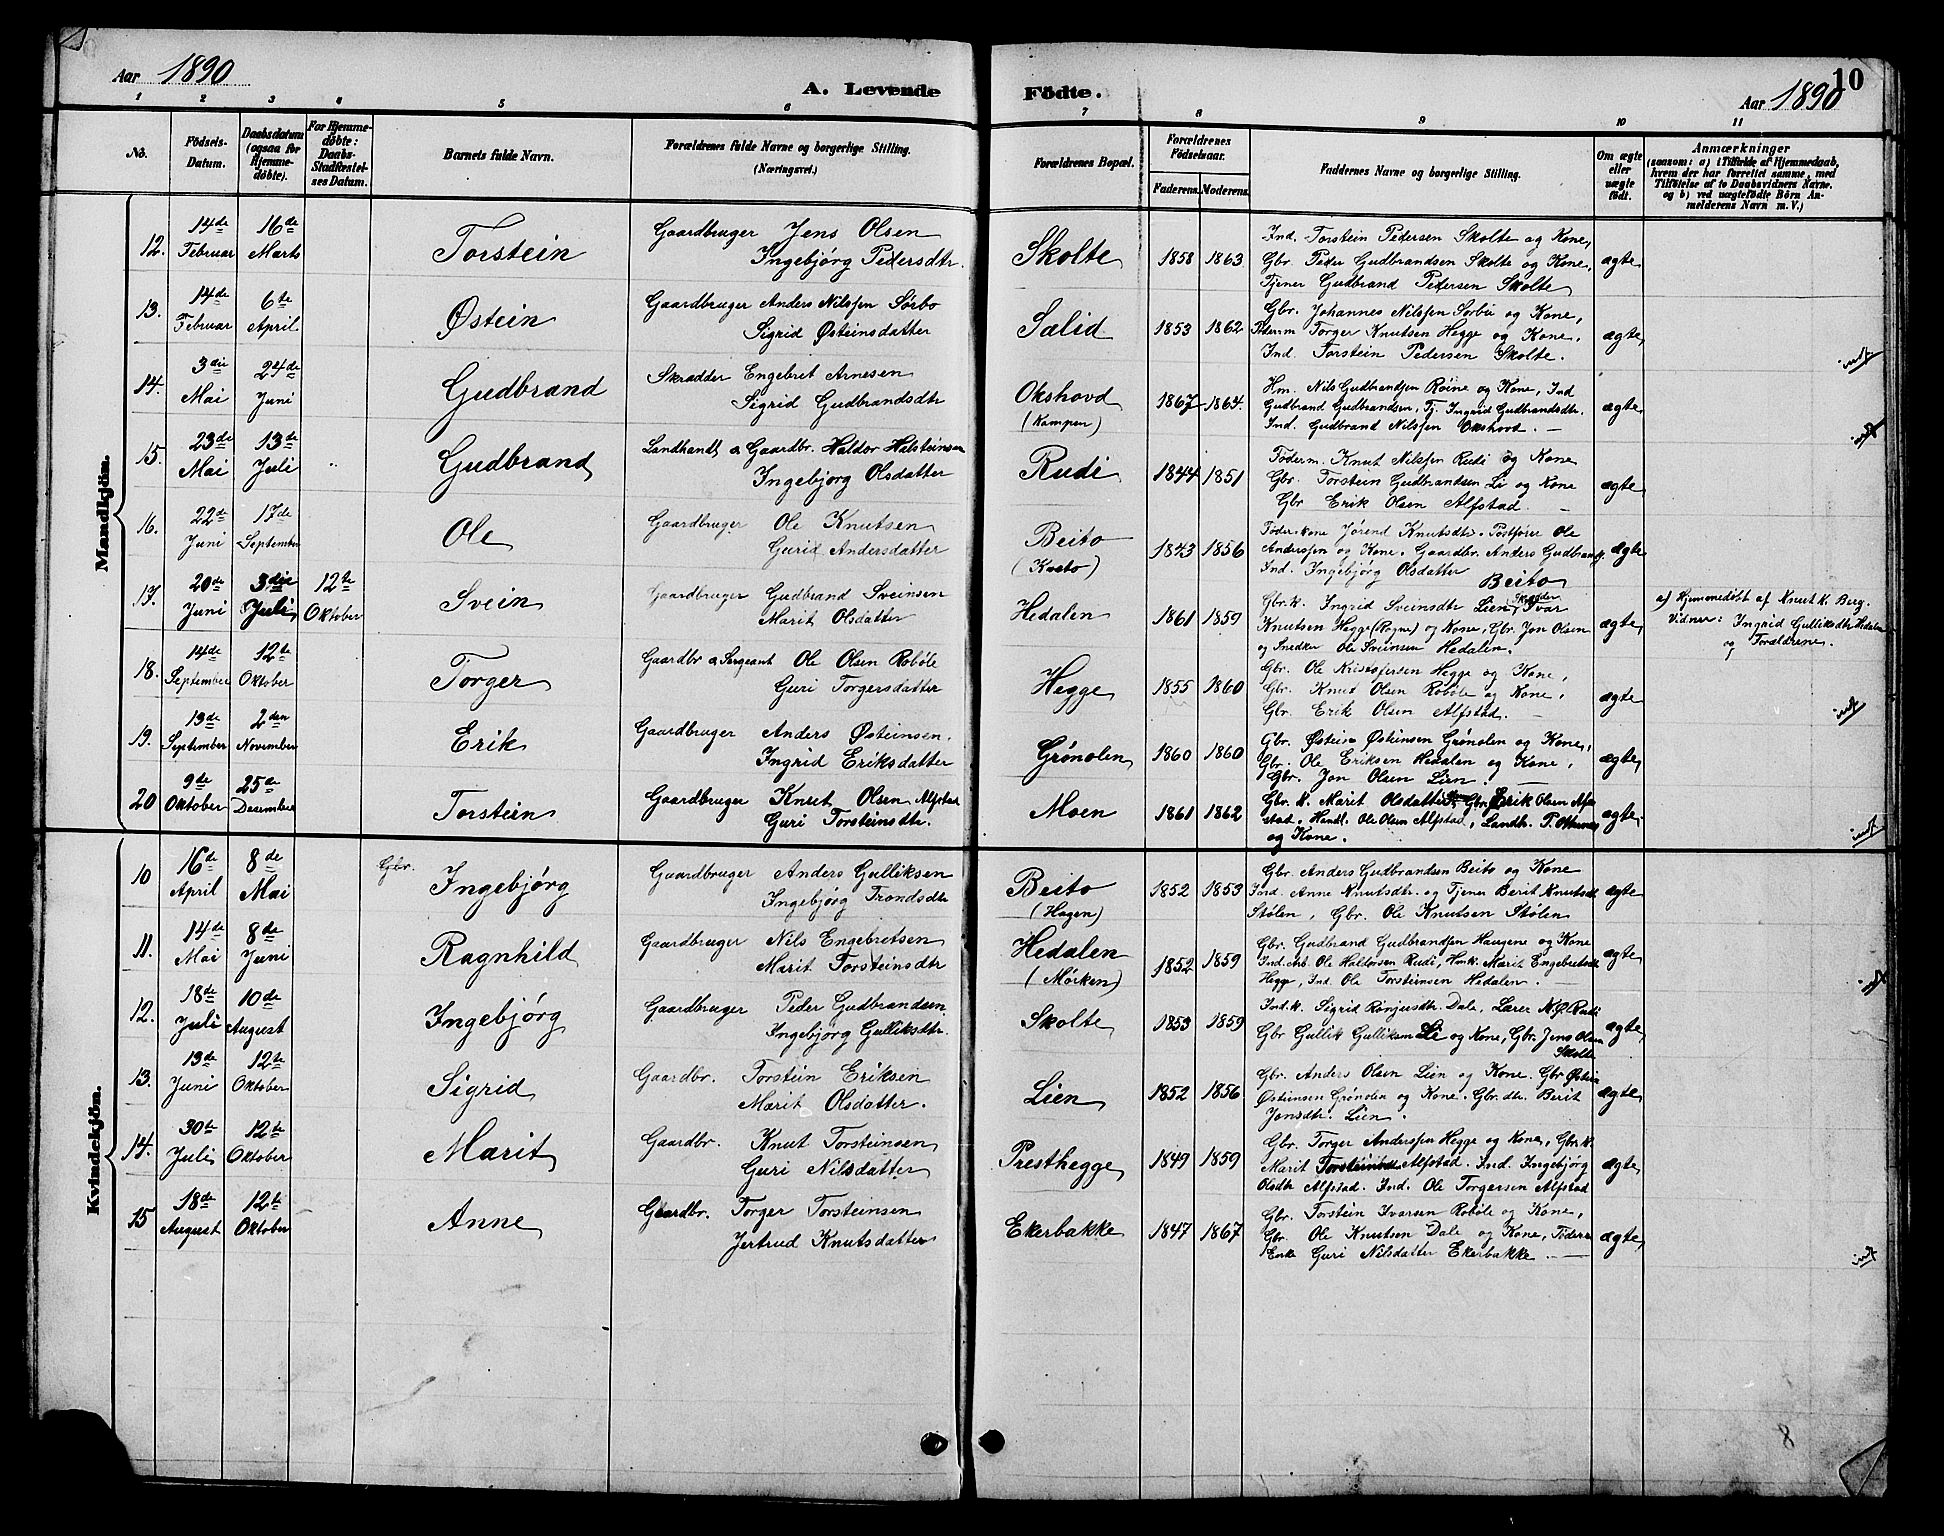 Aar 1890
A. Levende Födte.
Aar 1890
10
1 2 3 4 5 6 7 8 9 10 11
No.
Födsels-Datum.
Daabsdatum (ogsaa for Hjemmedöbte).
For Hjemmedöbte: Daabs-Stadfæstelses Datum.
Barnets fulde Navn.
Forældrenes fulde Navne og borgerlige Stilling.
(Næringsvei.)
Forældrenes Bopæl.
Forældrenes Födselsaar.
Faderens. Moderens.
Faddernes Navne og borgerlige Stilling.
Om ægte eller uægte födt.
Anmærkninger
(saasom: a) i Tilfælde af Hjemmedaab, hvem der har forrettet samme, med Tilföielse af to Daabsvidners Navne. og b) ved uægtefödte Börn Anmelderens Navn m. V.)
Mandkjön.
12. 14de Februar 16de Marts Torstein Gaardbruger Jens Olsen
Ingebjörg Pedersdtr. Skolte 1858 1863 Ind. Torstein Pedersen Skolte og Kone,
Gbr. Peder Gudbrandsen Skolte og Kone,
Tjener Gudbrand Pedersen Skolte ægte
13. 14de Februar 6te April Østein Gaardbruger Anders Nilssen Sørbø
Sigrid Østeinsdatter Sælid 1853 1862 Gbr. Johannes Nilssen Sørbø og Kone,
Föderm Torger Knutsen Hegge og Kone,
Ind. Torstein Pedersen Skolte. ægte
14. 3die Mai 24de Juni Gudbrand Skrædder Engebret Arnesen
Sigrid Gudbrandsdtr Okshovd
(Kampen) 1867 1864. Hm. Nils Gudbrandsen Röine og Kone, Ind
Gudbrand Gudbrandsen, Tj. Ingrid Gudbrandsdtr.
Ind. Gudbrand Nilssen Okshovd. ægte
15. 23de Mai 13de Juli " Gudbrand Landhandl. & Gaardbr. Haldor Halsteinsen
Ingebjörg Olsdatter Rudi 1844 1851 Föderm. Knut Nilssen Rudi og Kone
Gbr. Torstein Gudbrandsen Li og Kone
Gbr Erik Olsen Alfstad. ægte
16. 22de Juni 17de September Ole Gaardbruger Ole Knutsen
Gurid Andersdatter Beito 1843 1856 Föder-kone Jörend Knutsdtr. Postförer Ole
Anderssen og Kone. Gaardbr. Anders Gudbrands.
Ind. Ingebjörg Olsdatter Beito ægte
17. 20de Juni 3die Juli 12te Oktober Svein Gaardbruger Gudbrand Sveinsen
Marit Olsdatter Hedalen 1861 1859 Gbr.k. Ingrid Sveinsdtr Lien, Skrædder Ivar
Knutsen Hegge (Rogne) og Kone, Gbr. Jon Olsen
og Snedker Ole Sveinsen Hedalen. ægte
a) Hjemmedöbt af Knut K. Berg.
Vidner: Ingrid Gulliksdtr Hedalen
og Forældrene.
18. 14de September 12te Oktober Torger Gaardbr & Sergeant Ole Olsen Robøle
Guri Torgersdatter Hegge 1855 1860 Gbr. Ole Kristofersen Hegge og Kone,
Gbr. Knut Olsen Robøle og Kone,
Gbr. Erik Olsen Alfstad. ægte
19. 13de September 2den November Erik Gaardbruger Anders Østeinsen.
Ingrid Eriksdatter Grönolen 1860 1860 Gbr. Østein Østeinsen Grönolen og Kone,
Gbr. Ole Eriksen Hedalen og Kone,
Gbr. Jon Olsen Lien. ægte
20 9de Oktober 25de Desember Torstein Gaardbruger Knut Olsen Alfstad
Guri Torsteinsdtr. Moen 1861 1862 Gbr. k. Marit Olsdatter Gbr. Erik Olsen Alf-
stad. Handl. Ole Olsen Alfstad, Landh.
og Kone. ægte
Kvindekjön.
10 16de April 8de Mai Gbr. Ingebjörg Gaardbruger Anders Gulliksen
Ingebjörg Trondsdtr Beito
(Hagen) 1852 1853 Gbr. Anders Gudbrandsen Beito og Kone
Ind. Anne Knutsdtr. og Tjener Berit Knutsdtr
Stölen, Gbr. Ole Knutsen Stölen ægte
11. 14de Mai 8de Juni Ragnhild Gaardbruger Nils Engebretsen
Marit Torsteinsdtr Hedalen
(Mörken) 1852 1859 Gbr. Gudbrand Gudbrandsen Haugene og Kone
Ind. Arb. Ole Haldorsen Rudi, Marit Engebretsdtr
Hegge, Ind. Ole Torsteinsen Hedalen. ægte
12. 18de Juli 10de August Ingebjörg Gaardbruger Peder Gudbrandsen
Ingebjörg Gulliksdtr. Skolte 1853 1859 Ind.k. Sigrid Ronjusdtr Dale, Lærer N. Ø. Rudi
Gbr Gullik Gulliksen Li og Kone, Gbr. Jens Olsen
Skolte ægte
13. 13de Juni 12te Oktober Sigrid Gaardbr. Torstein Eriksen
Marit Olsdatter. Lien 1852 1856 Gbr. Anders Olsen Lien og Kone. Gbr Østein
Østeinsen Grönolen og Kone. Gbr. dtr. Berit
Jonsdtr. Lien. ægte
14. 30te Juli 12te Oktober Marit Gaardbr. Knut Torsteinsen
Guri Nilsdatter Presthegge 1849 1859 Gbr. Torger Anderssen Hegge og Kone, Gbr.k.
Marit Torsteinsdtr Alfstad. Ind. Ingebjörg
Olsdtr Alfstad. Ind. Ole Torgersen Alfstad ægte
15 18de August 12te Oktober Anne Gaardbr. Torger Torsteinsen
Jertrud Knutsdatter Ekerbakke 1847 1867 Gbr. Torstein Ivarsen Robøle og Kone,
Gbr. Ole Knutsen Dale og Kone, Föder
Enke Guri Nilsdatter Ekerbakke ægte
8